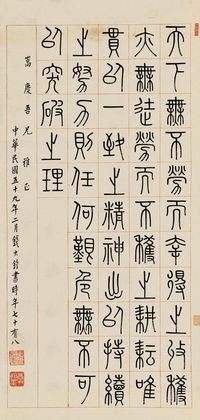 天下無不勞而幸得之收穫
亦無徒勞而不穫之耕耘唯
貫以一致之精神出以持續
之努力則任何艱危無不可
以突破之理
嵩慶吾兄 雅正
中華民國五十九年二月錢大鈞書時年七十有八